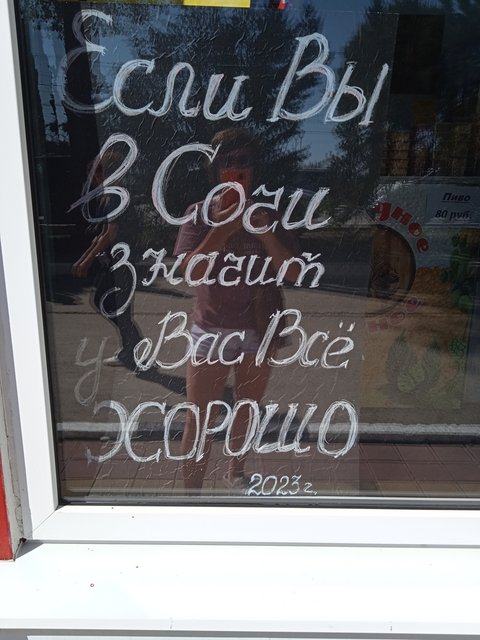 Если Вы
в Сочи
значит
у Вас Всё
ХОРОШО
2023 г.
Пиво
80 руб.